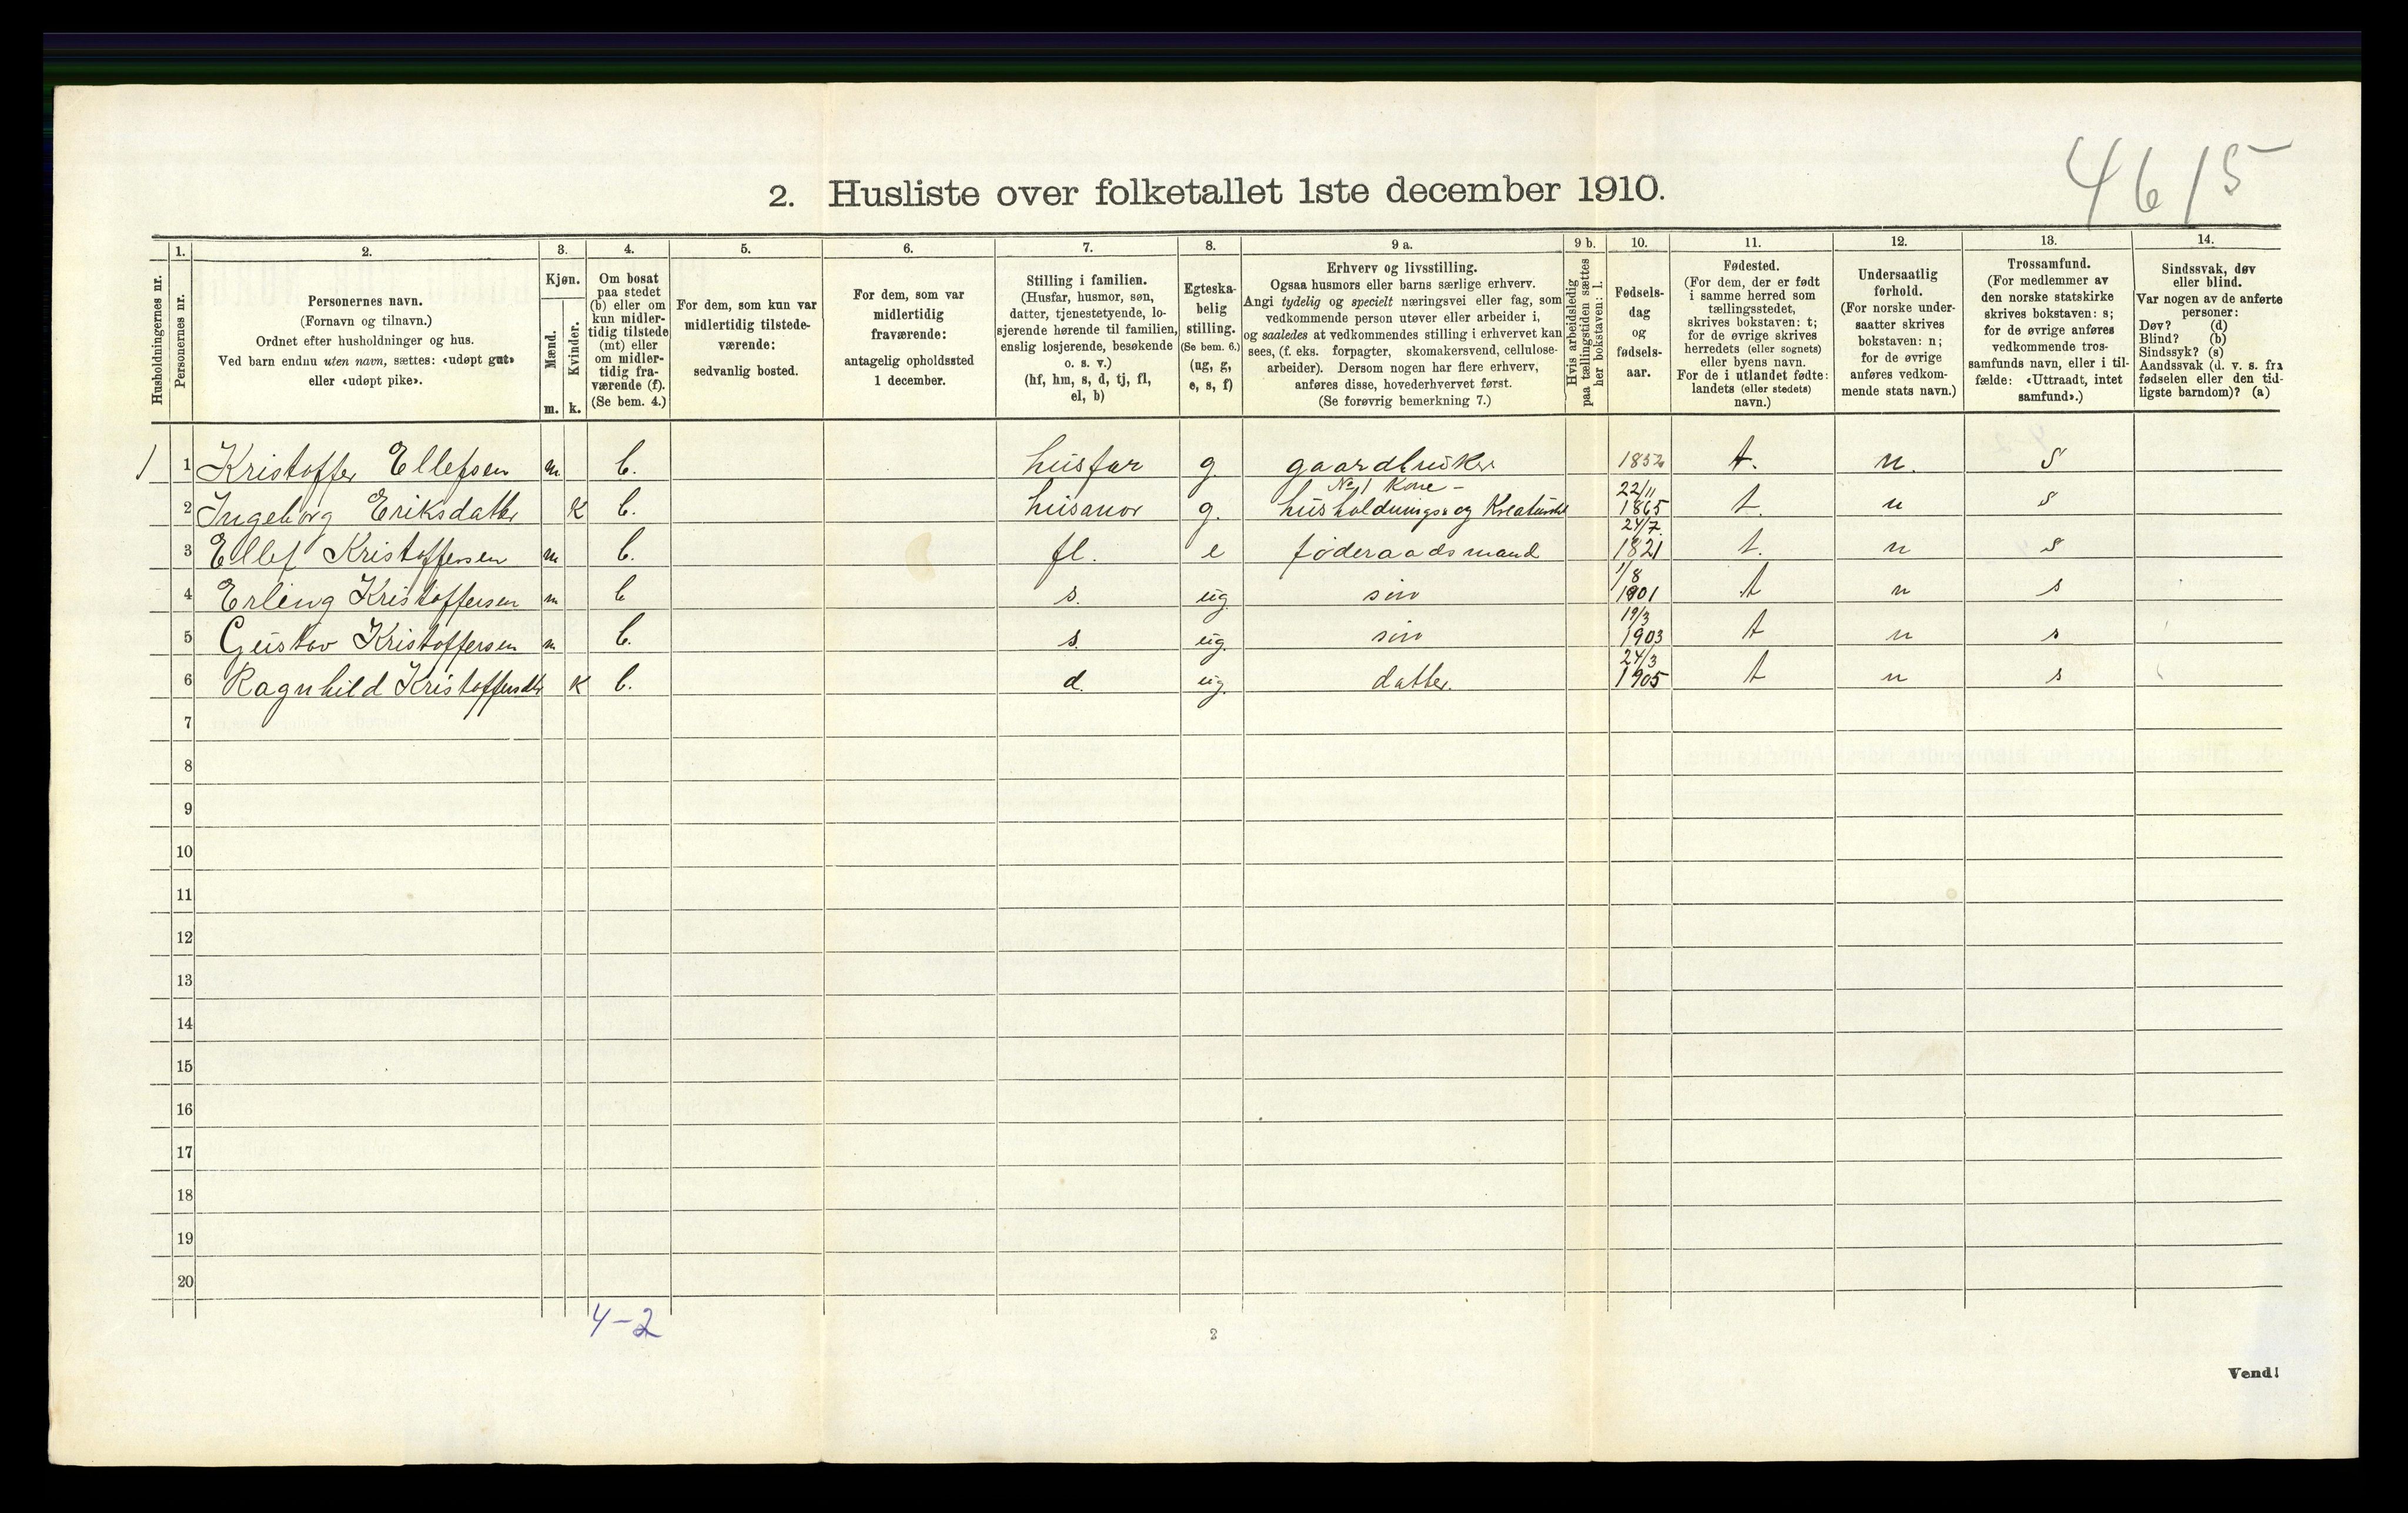 4615
2. Husliste over folketallet 1ste december 1910.
Husholdningernes nr.
1.
Personernes nr.
2.
Personernes navn.
(Fornavn og tilnavn.)
Ordnet efter husholdninger og hus.
Ved barn endnu uten navn, sættes: «udøpt gut»
eller «udøpt pike».
3.
Kjøn.
Mænd.
Kvinder.
m. k.
4.
Om bosat
paa stedet
(b) eller om
kun midler-
tidig tilstede
(mt) eller
om midler-
tidig fra-
værende (f).
(Se bem. 4.)
5.
For dem, som kun var
midlertidig tilstede-
værende:
sedvanlig bosted.
6.
For dem, som var
midlertidig
fraværende:
antagelig opholdssted
1 december.
7.
Stilling i familien.
(Husfar, husmor, søn,
datter, tjenestetyende, lo-
sjerende hørende til familien,
enslig losjerende, besøkende
o. s. v.)
(hf, hm, s, d, tj, fl,
el, b)
8.
Egteska-
belig
stilling.
(Se bem. 6.)
(ug, g,
e, s, f)
9 a.
Erhverv og livsstilling.
Ogsaa husmors eller barns særlige erhverv.
Angi tydelig og specielt næringsvei eller fag, som
vedkommende person utøver eller arbeider i,
og saaledes at vedkommendes stilling i erhvervet kan
sees, (f. eks. forpagter, skomakersvend, cellulose-
arbeider). Dersom nogen har flere erhverv,
anføres disse, hovederhvervet først.
(Se forøvrig bemerkning 7.)
9 b.
Hvis arbeidsledig
paa tællingstiden sættes
her bokstaven: l.
10.
Fødsels-
dag
og
fødsels-
aar.
11.
Fødested.
(For dem, der er født
i samme herred som
tællingsstedet,
skrives bokstaven: t;
for de øvrige skrives
herredets (eller sognets)
eller byens navn.
For de i utlandet fødte:
landets (eller stedets)
navn.)
12.
Undersaatlig
forhold.
(For norske under-
saatter skrives
bokstaven: n;
for de øvrige
anføres vedkom-
mende stats navn.)
13.
Trossamfund.
(For medlemmer av
den norske statskirke
skrives bokstaven: s;
for de øvrige anføres
vedkommende tros-
samfunds navn, eller i til-
fælde: «Uttraadt, intet
samfund».)
14.
Sindssvak, døv
eller blind.
Var nogen av de anførte
personer:
Døv? (d)
Blind? (b)
Sindssyk? (s)
Aandssvak (d. v. s. fra
fødselen eller den tid-
ligste barndom)? (a)
1 1 Kristoffer Ellefsen m b. husfar g gaardbruker 1852 t. n. s
No 1 Kone - 22/11
2 Ingeborg Eriksdatter K b. husmor g. husholdnings- og Kreaturstel 1865 t. n s
24/7
3 Ellef Kristoffersen m b. fl. e føderaadsmand 1821 t. n s
1/8
4 Erling Kristoffersen m b s. ug søn 1901 t n s
19/3
5 Gustav Kristoffersen m b. s. ug. søn 1903 t n s
24/3
6 Ragnhild Kristoffersdtr K b. d. ug. datter. 1905 t n s
7
8
9
10
11
12
13
14
15
16
17
18
19
20
4-2
2
Vend!